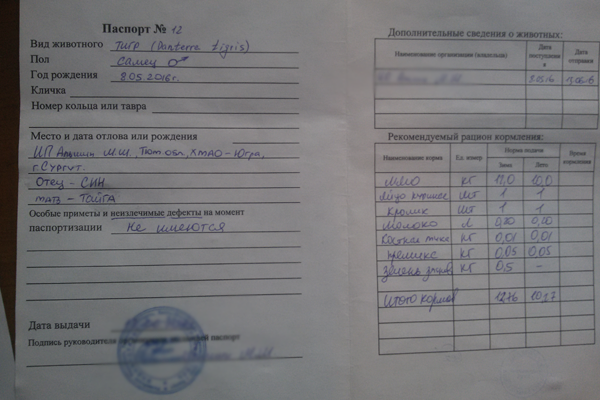 Паспорт № 12
Вид животного Тигр (Panterra tigris)
Пол самец ♂
Год рождения 8.05.2016 г.
Кличка
Номер кольца или тавра
Место и дата отлова или рождения
ИП М.Ш., Тюм обл., ХМАО-Югра,
г. Сургут.
Отец - СИН
мать - ТАЙГА
Особые приметы и неизлечимые дефекты на момент
паспортизации Не имеются
Дата выдачи
Подпись руководителя паспорт
Дополнительные сведения о животных:
Наименование организации (владельца) Дата поступления Дата отправки
Рекомендуемый рацион кормления:
Наименование корма Ед. измер Норма выдачи Время кормления
Зима Лето
Мясо кг 12,0 10,0
Яйцо куриное шт 1 1
Кролик шт 1 1
Молоко л 0,20 0,20
Костная мука кг 0,01 0,01
премикс кг 0,05 0,05
зелень кг 0,5 -
Итого кормов